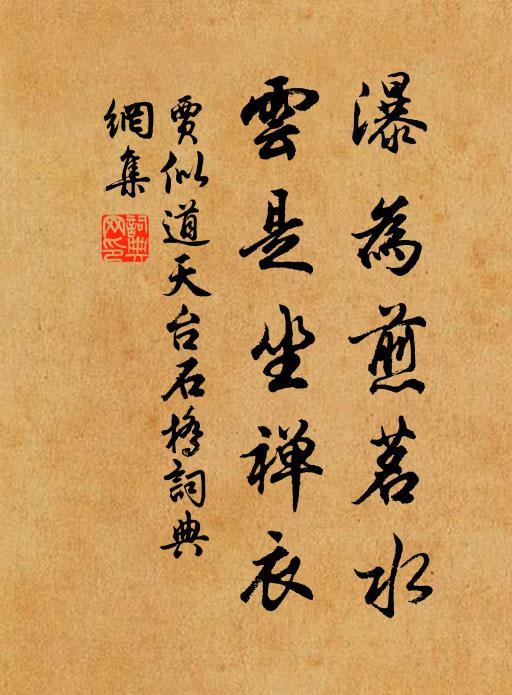 瀑為煎茗水
雲是坐禅衣
賈似道天台石橋詞典
網集
詞典
网印